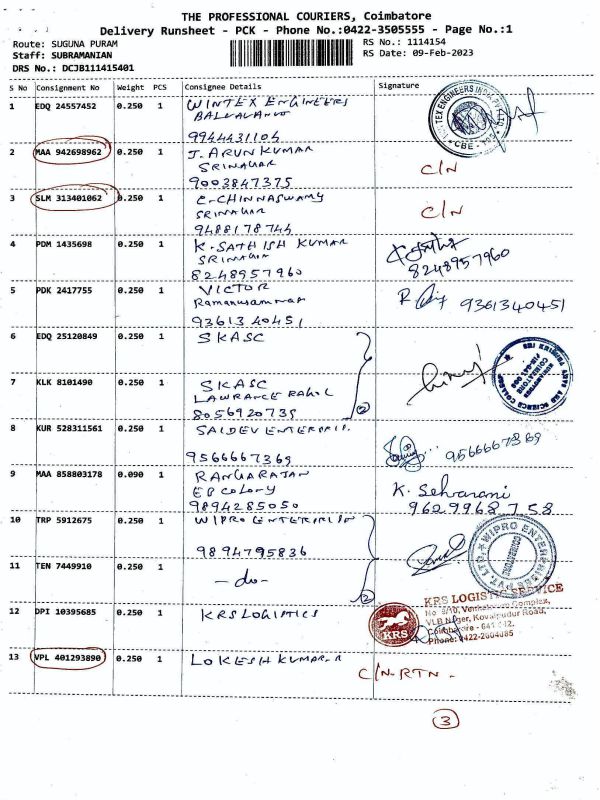 THE PROFESSIONAL COURIERS, Coimbatore
Delivery Runsheet - PCK - Phone No.:0422-3505555 - Page No.:1
Route: SUGUNA PURAM
RS No.: 1114154
Staff: SUBRAMANIAN
RS Date: 09-Feb-2023
DRS No.: DCJB111415401
S No Consignment No Weight PCS Consignee Details Signature
1 EDQ 24557452 0.250 1 WINTEX ENGINEERS
9944431104
2 MAA 942698962 0.250 1 J. ARUN KUMAR
SRINAGAR C/N
9003847375
3 SLM 313401062 0.250 1 C-CHINNASWAMY
SRINAGAR C/N
9488178744
4 PDM 1435698 0.250 1 K. SATHISH KUMAR
SRINAGAR
8248957960 8248957960
5 PDK 2417755 0.250 1 VICTOR
9361340451 9361340451
6 EDQ 25120849 0.250 1 SKASC
7 KLK 8101490 0.250 1 SKASC
LAWRANCE
8056920739 2
8 KUR 528311561 0.250 1
9566667369 9566667369
9 MAA 858803178 0.090 1 RANGARAJAN
EB COLONY K. Selvarani
9894285050 9629968758
10 TRP 5912675 0.250 1 WIPRO
9894795836
11 TEN 7449910 0.250 1 -do- 2
WIPRO ENTERPRISES
KRS LOGISTIC SERVICE
12 DPI 10395685 0.250 1 KRS LOGISTICS
KRS
No. 9/10, Venkatesam Complex,
VLB Nager, Kovaipudur Road,
Coimbatore - 641 042.
Phone: 0422-2604085
13 VPL 401293890 0.250 1 LOKESH KUMAR. R
C/N-RTN-
3